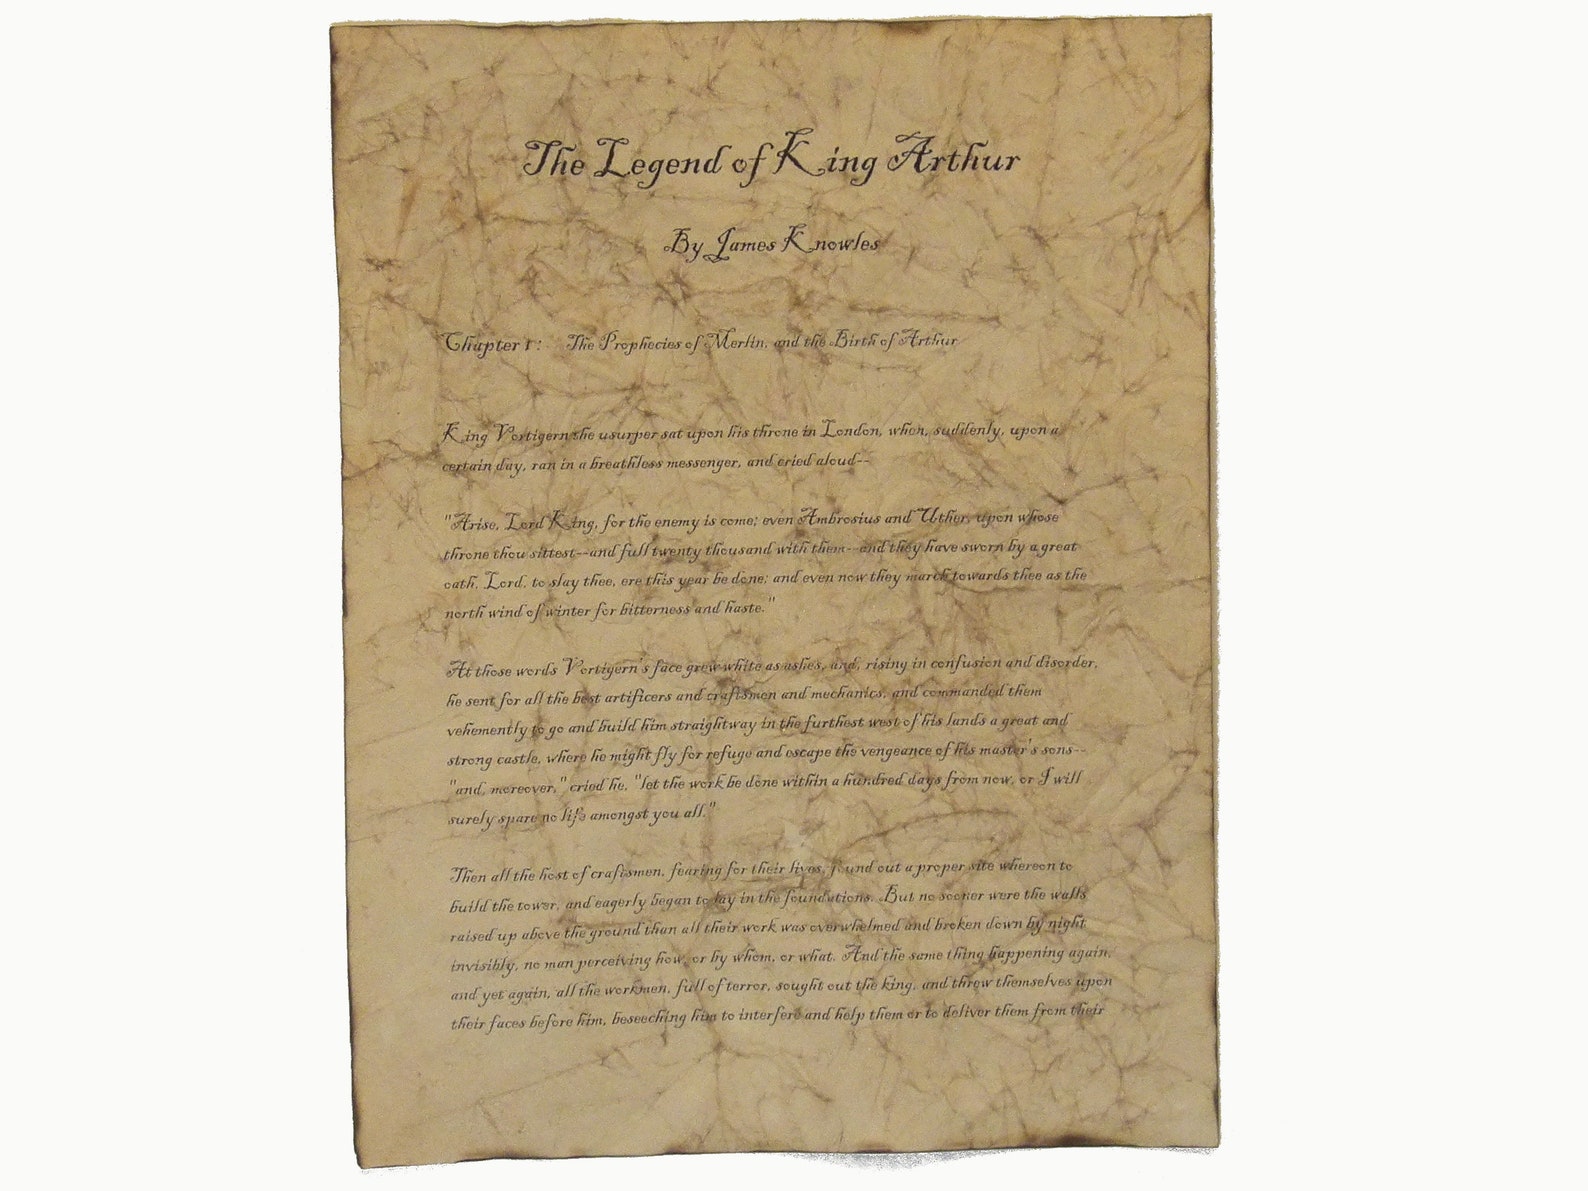 The Legend of King Arthur
By James Knowles
Chapter 1: The Prophecies of Merlin, and the Birth of Arthur
King Vortigern the usurper sat upon his throne in London, when, suddenly, upon a
certain day, ran in a breathless messenger, and cried aloud--
"Arise, Lord King, for the enemy is come; even Ambrosius and Uther, upon whose
throne thou sittest--and full twenty thousand with them--and they have sworn by a great
oath, Lord, to slay thee, ere this year be done; and even now they march towards thee as the
north wind of winter for bitterness and haste."
At those words Vortigern's face grew white as ashes, and, rising in confusion and disorder,
he sent for all the best artificers and craftsmen and mechanics, and commanded them
vehemently to go and build him straightway in the furthest west of his lands a great and
strong castle, where he might fly for refuge and escape the vengeance of his master's sons--
"and, moreover," cried he, "let the work be done within a hundred days from now, or I will
surely spare no life amongst you all."
Then all the host of craftsmen, fearing for their lives, found out a proper site whereon to
build the tower, and eagerly began to lay in the foundations. But no sooner were the walls
raised up above the ground than all their work was overwhelmed and broken down by night
invisibly, no man perceiving how, or by whom, or what. And the same thing happening again,
and yet again, all the workmen, full of terror, sought out the king, and threw themselves upon
their faces before him, beseeching him to interfere and help them or to deliver them from their